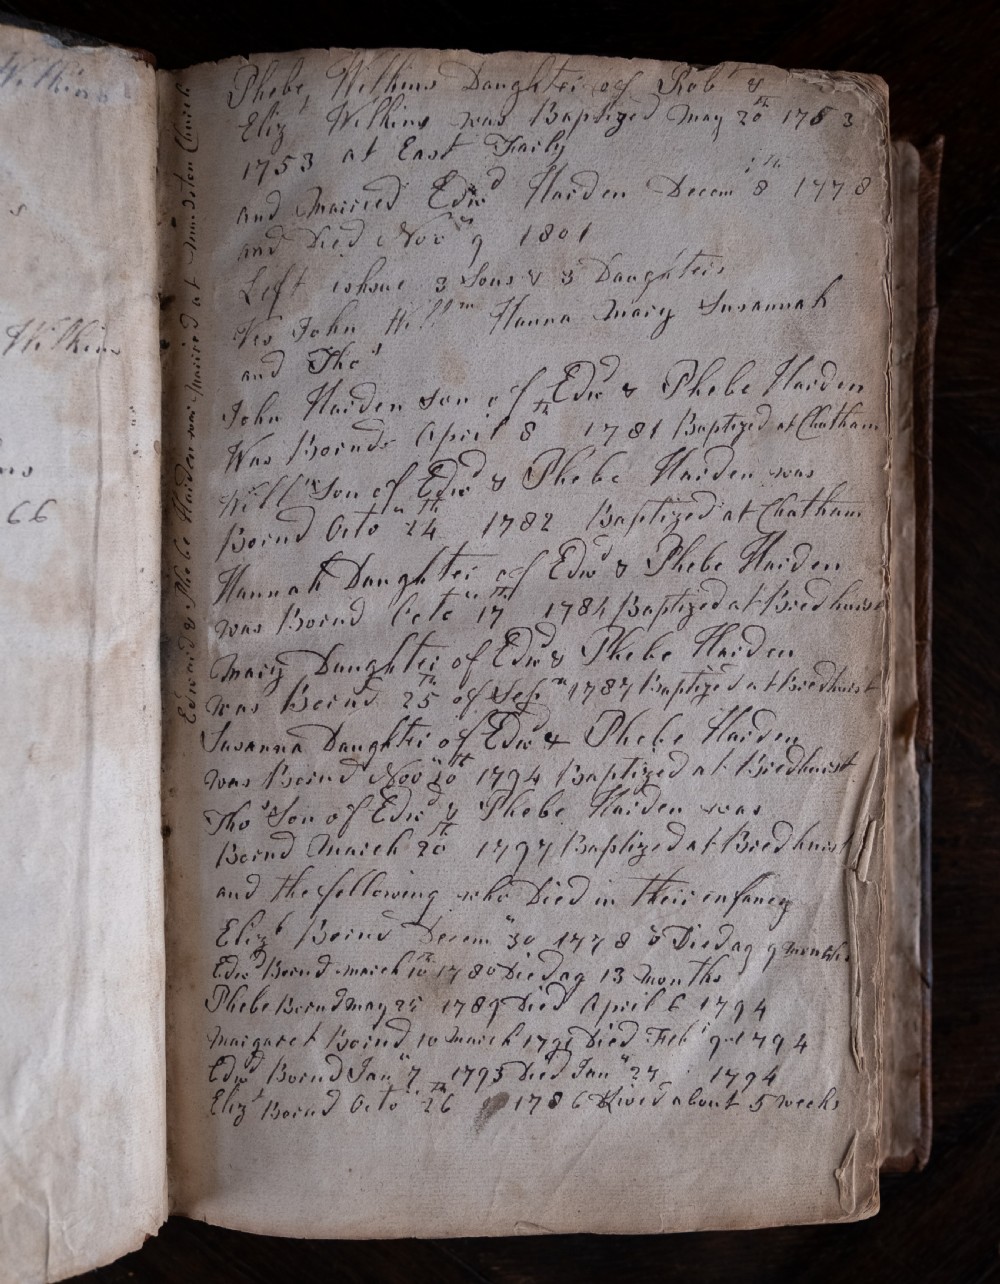 Wilkins
s
Wilkins
ns
66
Edward & Phebe Harden was Maried at Church
Phebe Wilkins Daughter of Robt &
Elizt Wilkins was Baptized May 20th 1753
1753 at East Farly
and Married Edwd Harden Decemr 8th 1778
and Died Novr 9 1801
Left ishsue 3 Sons & 3 Daughters
John Willm Hanna Mary Susannah
and Thos
John Harden Son of Edwd & Phebe Harden
Was Bornd April 8th 1781 Baptized at Chatham
Willm Son of Edwd & Phebe Harden was
Bornd Octo 24th 1782 Baptized at Chatham
Hannah Daughter of Edwd & Phebe Harden
was Bornd Octo 17th 1784 Baptized at Bredhurst
Mary Daughter of Edwd & Phebe Harden
was Bornd 25th of Sepm 1787 Baptized at Bredhurst
Susanna Daughter of Edwd & Phebe Harden
was Bornd Novr 20th 1794 Baptized at Bredhurst
Thos Son of Edwd & Phebe Harden was
Bornd March 20th 1797 Baptized at Bredhurst
and the following who Died in their enfancy
Elizb Bornd Decem 30 1778 Died ag 9 months
Edwd Bornd march 10th 1780 Died ag 13 months
Phebe Bornd may 25 1789 Died April 6 1794
Margaret Bornd 10 March Died Feb 9 1794
Edwd Bornd Jan 7 1793 Died Jan 27 1794
Elizt Bornd Octo 26th 1786 Lived about 5 weeks